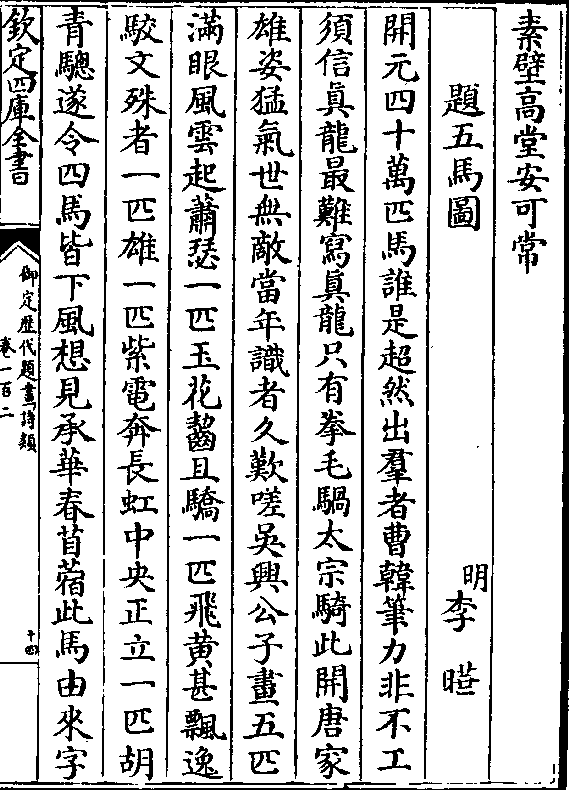 素壁高堂安可常
題五馬圖
明李曄
開元四十萬匹馬誰是超然出羣者曹韓筆力非不工
須信真龍最難寫真龍只有拳毛騧太宗騎此開唐家
雄姿猛氣世無敵當年識者久歎嗟吳興公子畫五匹
滿眼風雲起蕭瑟一匹玉花齧且驕一匹飛黄甚飄逸
駮文殊者一匹雄一匹紫電奔長虹中央正立一匹胡
青驄遂令四馬皆下風想見承華春苜蓿此馬由來字
欽定四庫全書
御定歴代題畫詩類
卷一百二
十四